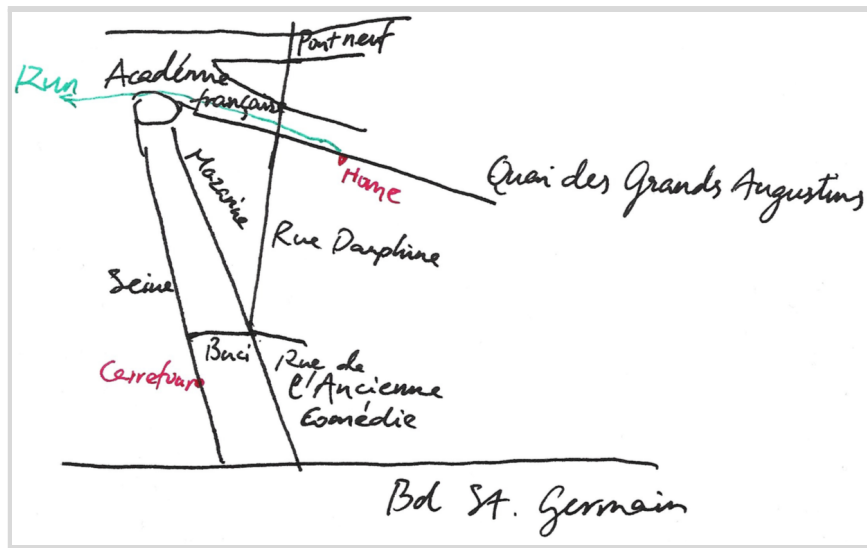 Pont neuf
Run
Académie
française
Quai des Grands Augustins
Home
Mazarine
Rue Dauphine
Seine
Buci
Rue de
l'Ancienne
Comédie
Carrefour
Bd St. Germain